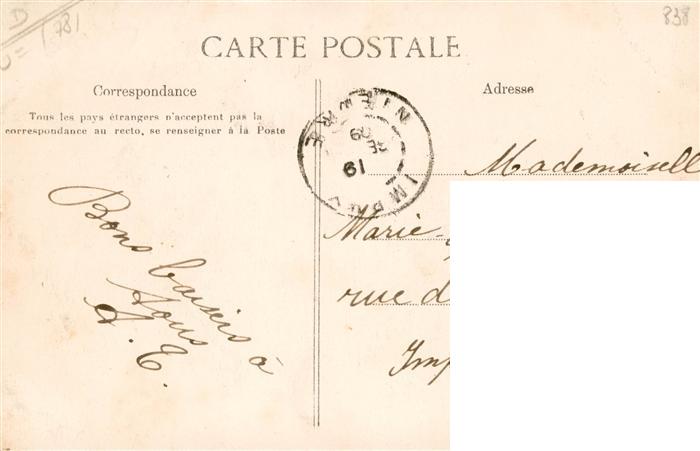 D
1781
838
CARTE POSTALE
Correspondance
Tous les pays étrangers n'acceptent pas la
correspondance au recto, se renseigner à la Poste
Bons baisers à
tous
A. E.
Adresse
19
Mademoisell
Marie
rue d
Imp